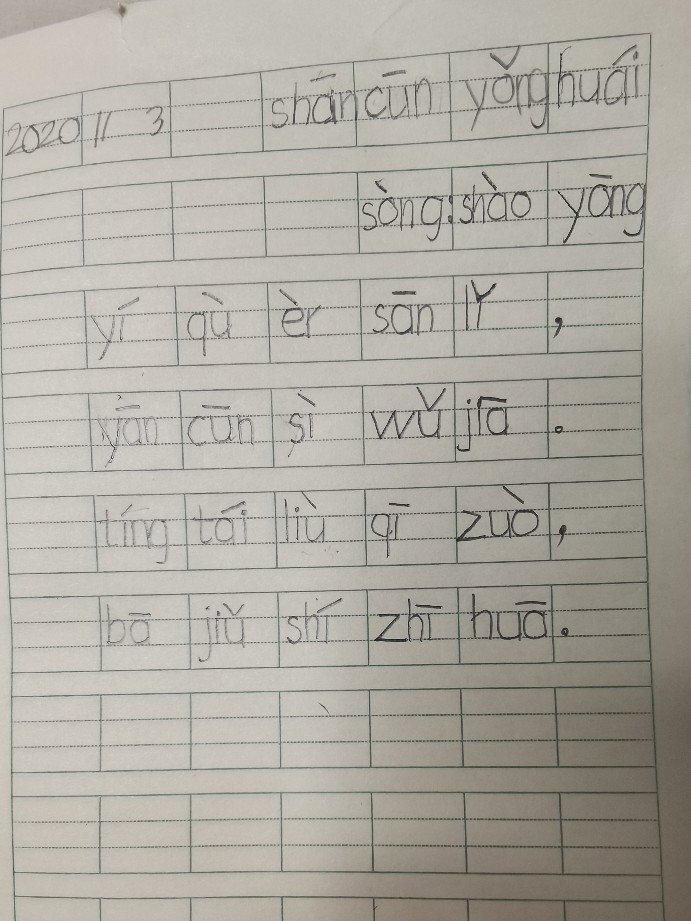 2020 11 3 shān cūn yǒng huái
sòng: shào yōng
yí qù èr sān lǐ ,
yān cūn sì wǔ jiā 。
tíng tái liù qī zuò ,
bā jiǔ shí zhī huā 。